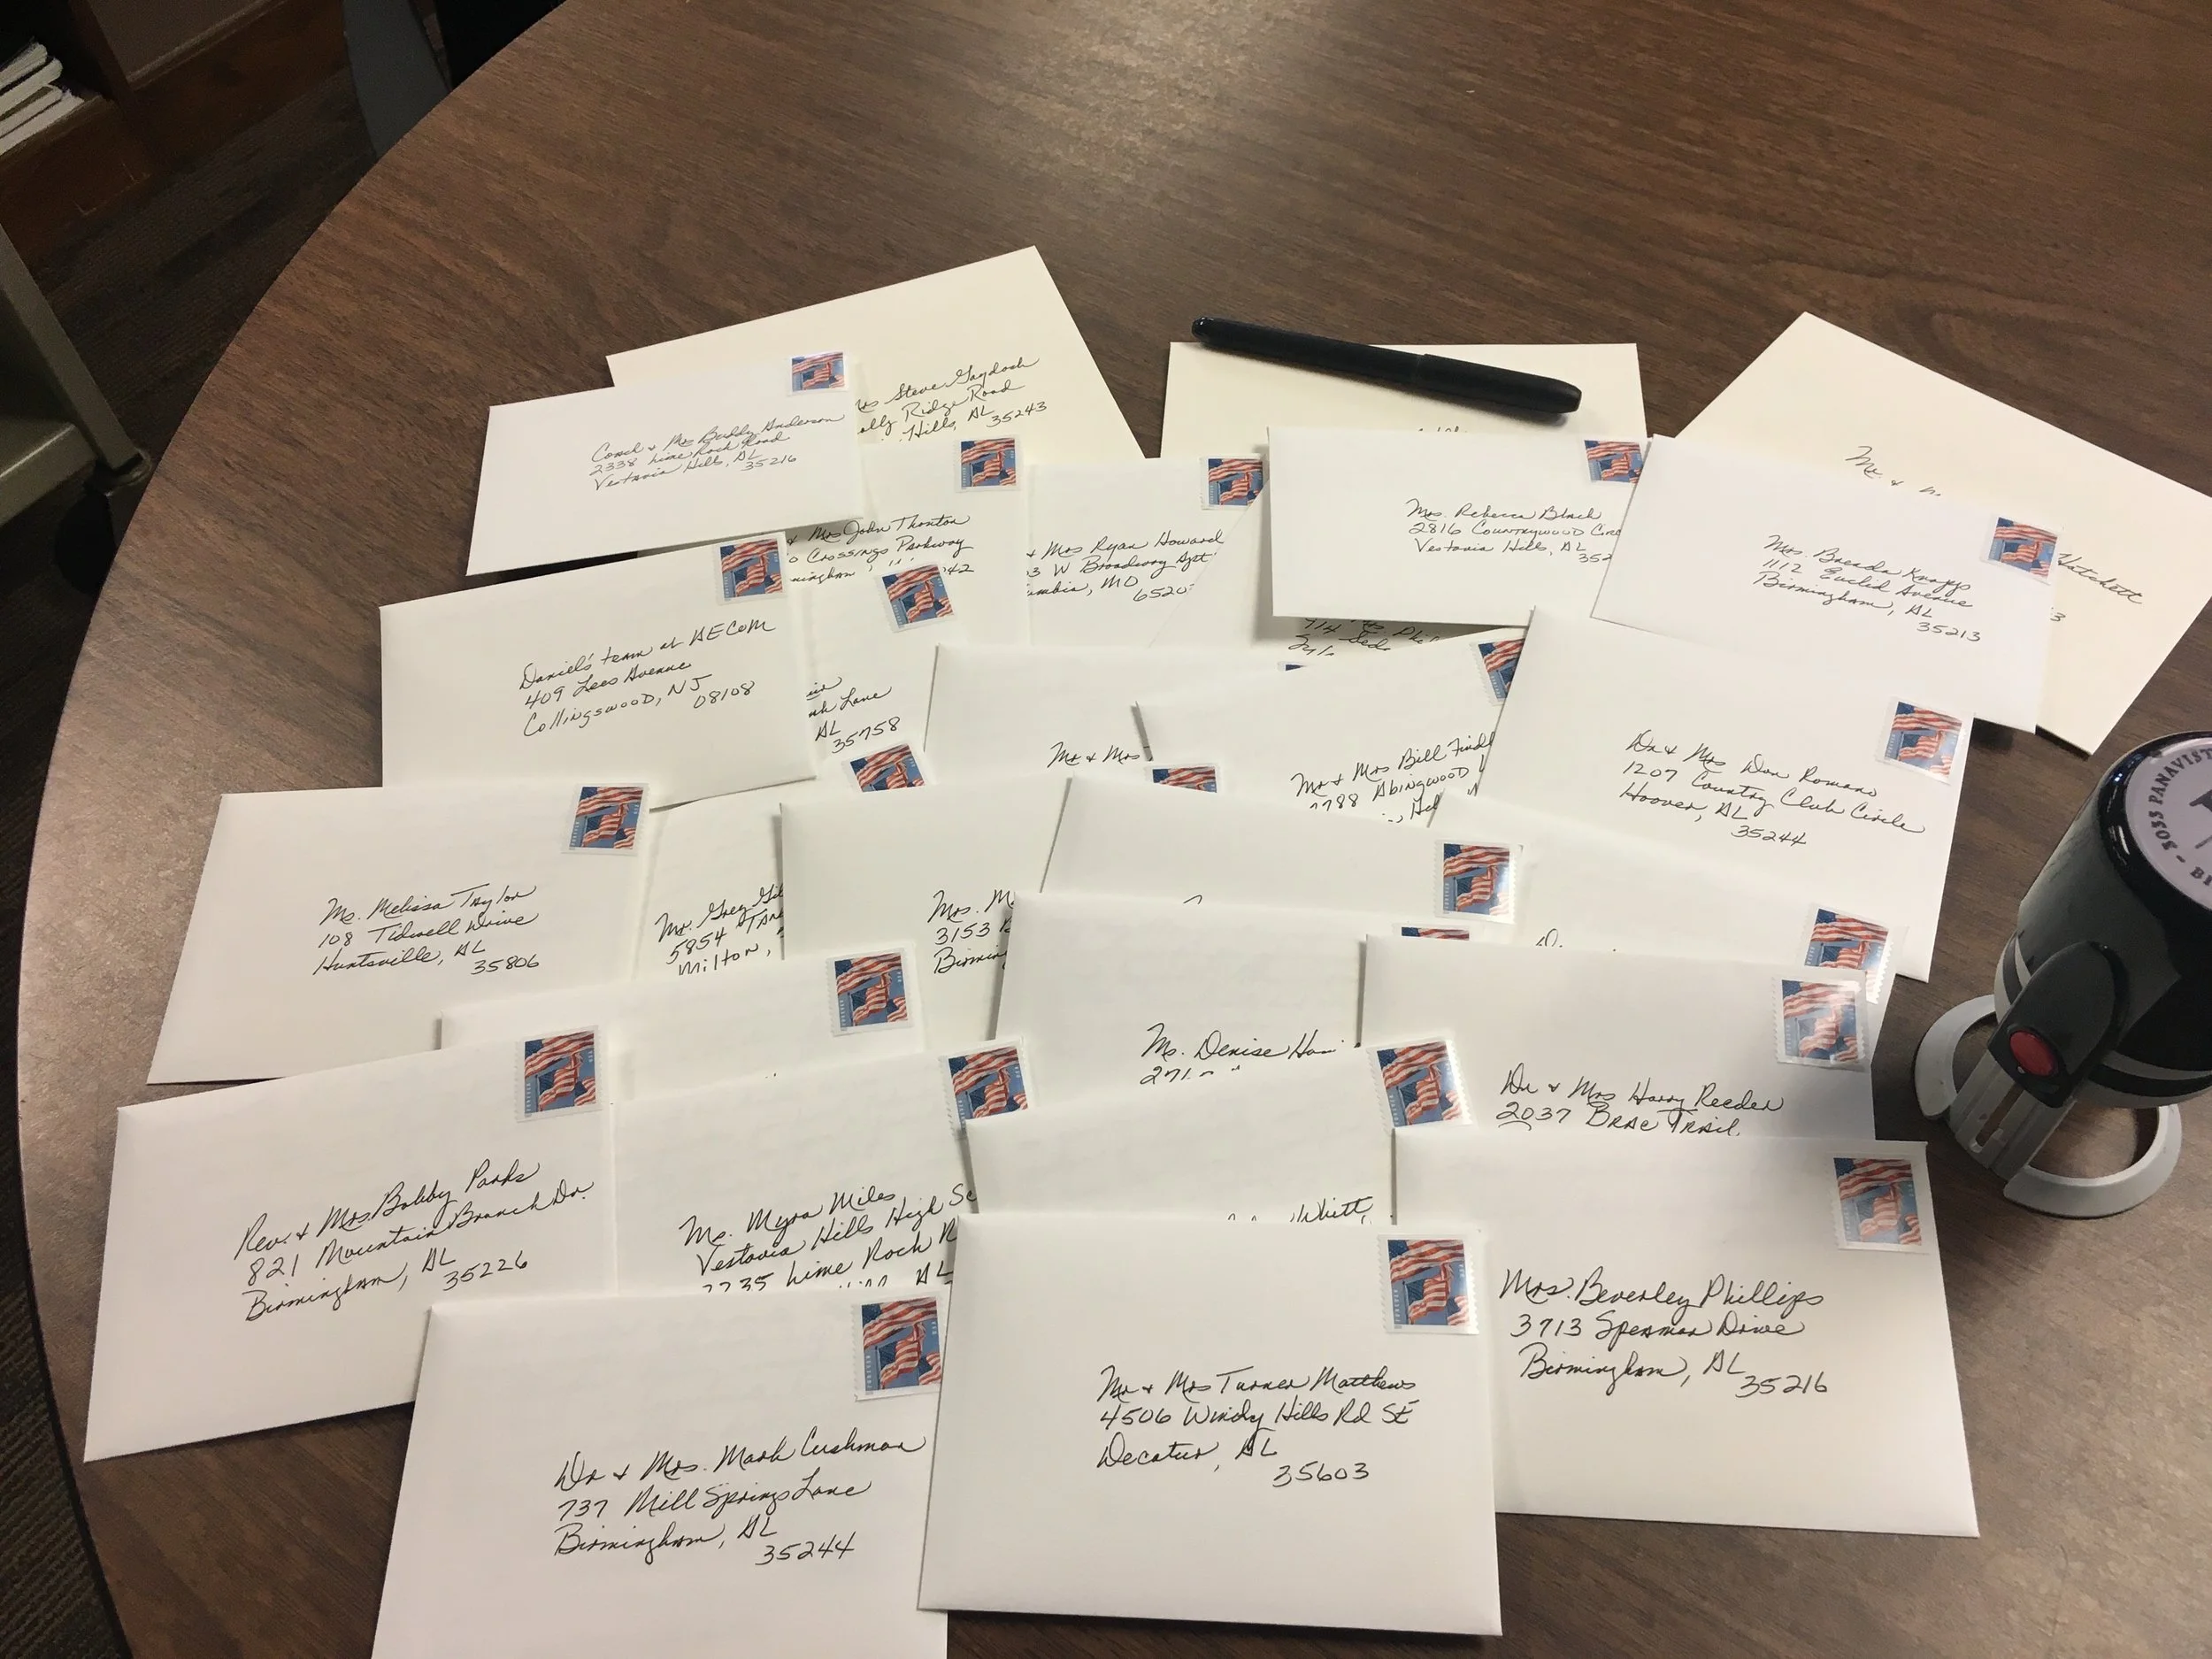 Mrs Steve Gaydosh
Ridge Road
Hills, AL
35243
Coach & Mrs Buddy Anderson
2338 Lime Rock Road
Vestavia Hills, AL
35216
Mr & M
Hatchett
3
& Mrs John Thornton
Crossings Parkway
& Mrs Ryan Howard
3 W Broadway Apt
MO
6520
Mrs. Rebecca Black
2816 Countrywood Circ
Vestavia Hills, AL
352
Mrs. Brenda Knapp
1112 Euclid Avenue
Birmingham, AL
35213
Daniel's team at AECOM
409 Lees Avenue
Collingswood, NJ
08108
Lane
AL
35758
Mr & Mrs
Mr & Mrs Bill Findl
788 Abingwood
Dr & Mrs Don Romano
1207 Country Club Circle
Hoover, AL
35244
3OSS PANAVIST
Ms. Melissa Taylor
108 Tidwell Drive
Huntsville, AL
35806
Mr. Greg Gil
5854
Milton,
Mrs. M
3153
Birming
Ms. Denise
271
Dr & Mrs Harry Reeder
2037 Brae Trail
Rev. & Mrs. Bobby Parks
821 Mountain Branch Dr.
Birmingham, AL
35226
Ms. Myra Miles
Vestavia Hills High Sc
2235 Lime Rock R
AL
Whitt
Mrs. Beverley Phillips
3713 Spearman Drive
Birmingham, AL
35216
Mr & Mrs Turner Matthews
4506 Windy Hills Rd SE
Decatur, AL
35603
Dr & Mrs. Mark Cushman
737 Mill Springs Lane
Birmingham, AL
35244